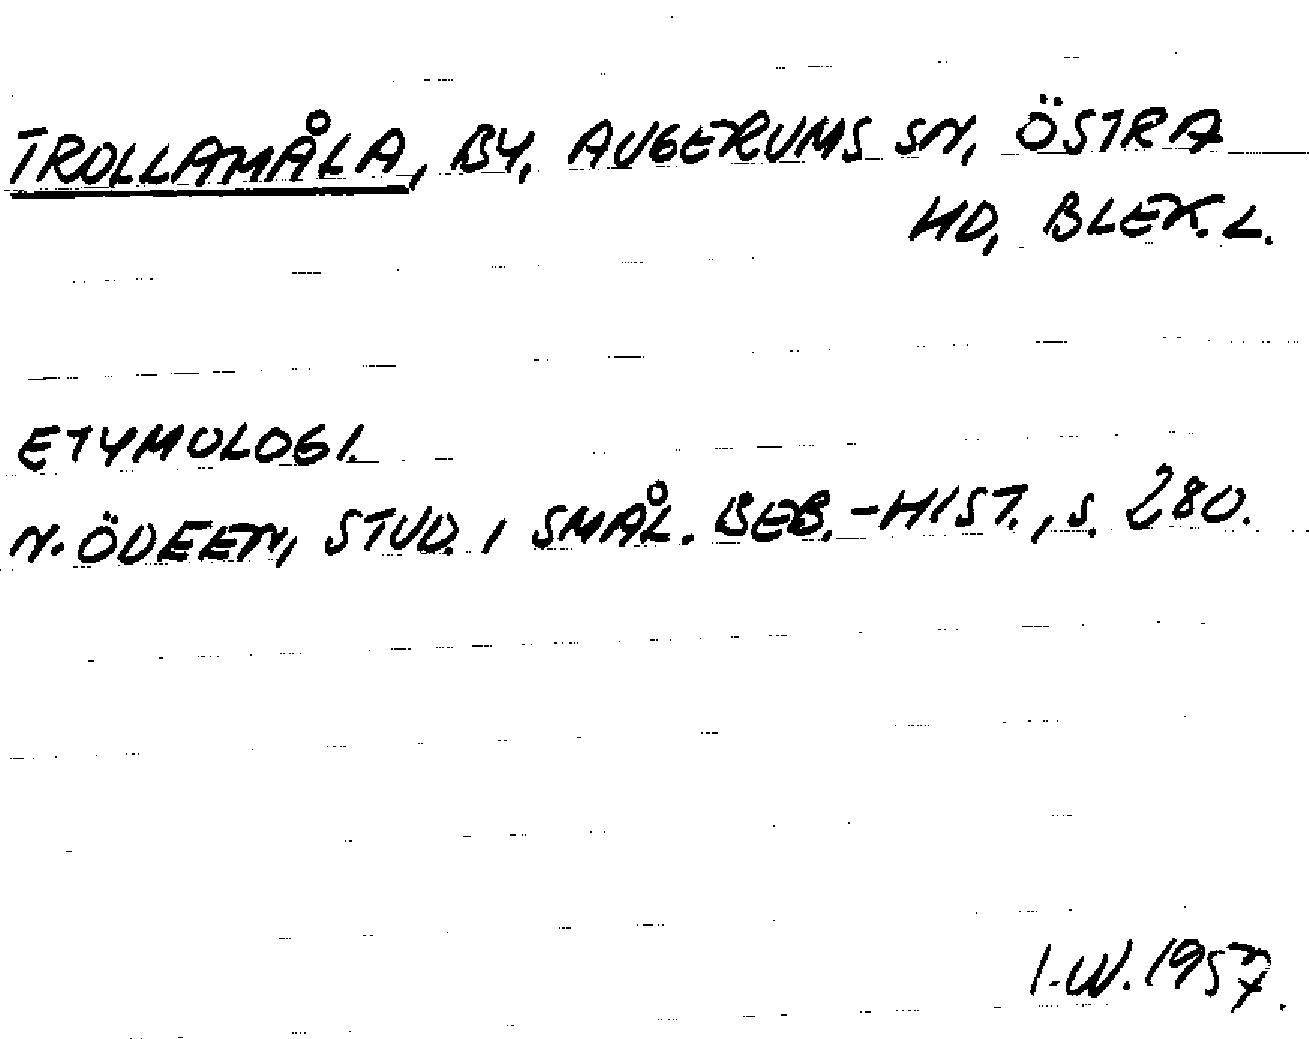 TROLLAMÅLA, BY, AUGERUMS SN, ÖSTRA
HD, BLEK. L.
ETYMOLOGI.
N. ÖDEEN, STUD. I SMÅL. BEB.-HIST., S. 280.
I.W. 1957.